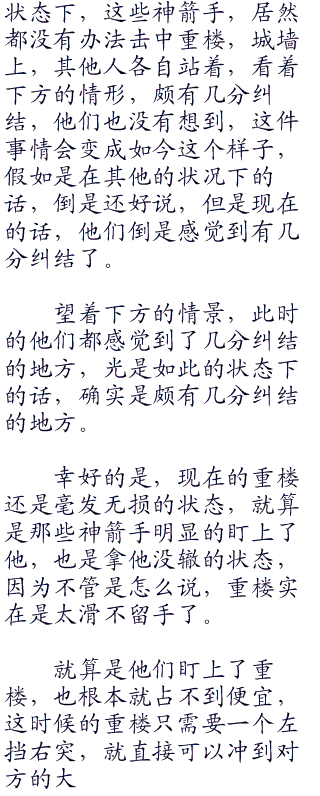 状态下，这些神箭手，居然
都没有办法击中重楼，城墙
上，其他人各自站着，看着
下方的情形，颇有几分纠
结，他们也没有想到，这件
事情会变成如今这个样子，
假如是在其他的状况下的
话，倒是还好说，但是现在
的话，他们倒是感觉到有几
分纠结了。
望着下方的情景，此时
的他们都感觉到了几分纠结
的地方，光是如此的状态下
的话，确实是颇有几分纠结
的地方。
幸好的是，现在的重楼
还是毫发无损的状态，就算
是那些神箭手明显的盯上了
他，也是拿他没辙的状态，
因为不管是怎么说，重楼实
在是太滑不留手了。
就算是他们盯上了重
楼，也根本就占不到便宜，
这时候的重楼只需要一个左
挡右突，就直接可以冲到对
方的大